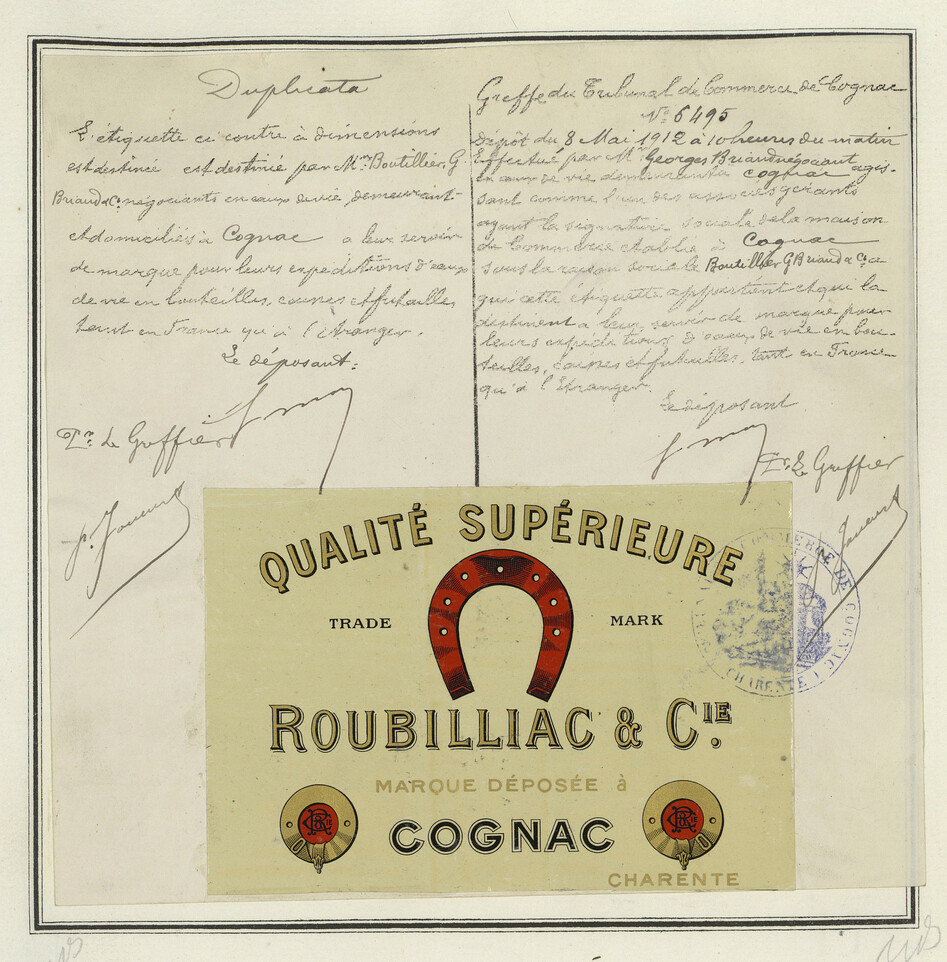 Duplicata
L'étiquette ci contre à dimensions
est destinée est destinée par Mrs Boutillier, G.
Briand & Co négociants en eaux de vie, demeurant
et domiciliés à Cognac a leur servir
de marque pour leurs expéditions d'eaux
de vie en bouteilles, caisses et futailles,
tant en France qu'à l'étranger.
Le déposant:
Pr. Le Greffier
Greffe du Tribunal de Commerce de Cognac
No 6495
Dépôt du 8 Mai 1912 à 10 heures du matin
Effectué par Mr Georges Briand négociant
en eaux de vie demeurant à Cognac agis-
sant comme l'un des associés gérants
ayant la signature sociale de la maison
de Commerce établie à Cognac
sous la raison sociale Boutillier G Briand & Co a
qui cette étiquette appartient et qui la
destinent a leur servir de marque pour
leurs expéditions d'eaux de vie en bou-
teilles, caisses et futailles, tant en France
qu'à l'Etranger.
Le déposant
Pr. Le Greffier
QUALITÉ SUPÉRIEURE
TRADE MARK
ROUBILLIAC & CIE.
MARQUE DÉPOSÉE à
COGNAC
CHARENTE
COMMERCE DE COGNAC
CHARENTE